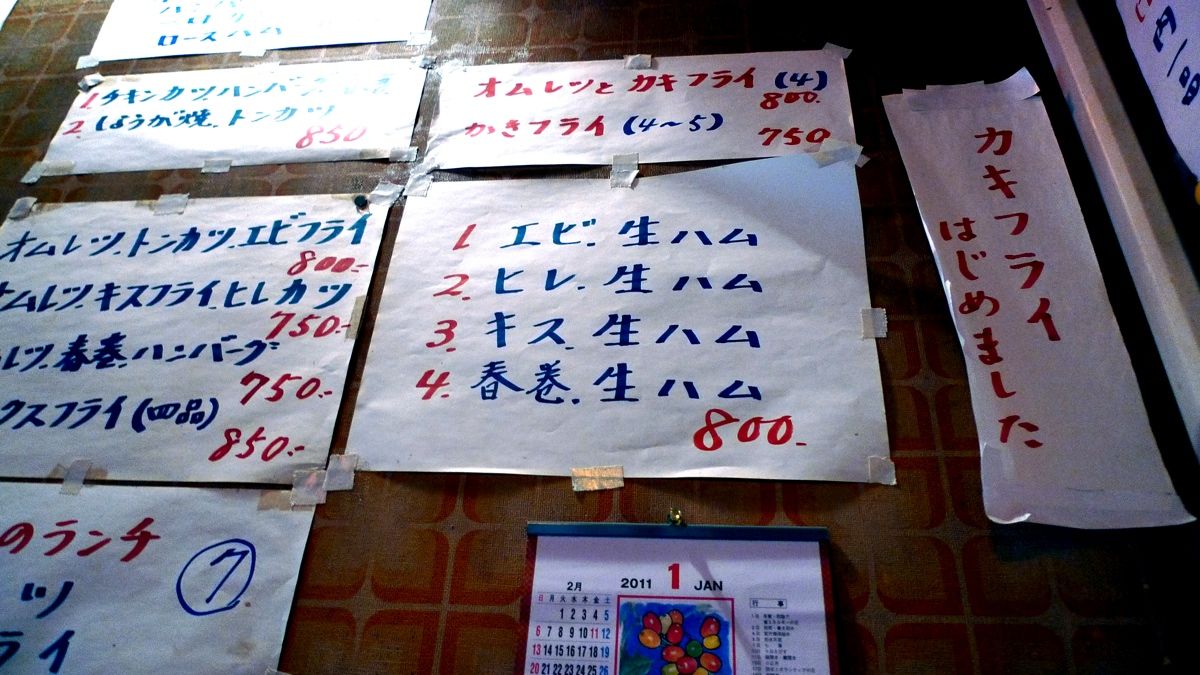 ロースハム
1 チキンカツ.ハンバ
2. しょうが焼.トンカツ
850
オムレツと カキフライ (4)
800.
かきフライ (4〜5)
750
オムレツ.トンカツ.エビフライ
800.-
オムレツ.キスフライ.ヒレカツ
750.-
レツ.春巻.ハンバーグ
750.-
クスフライ(四品)
850.-
1 エビ.生ハム
2. ヒレ.生ハム
3. キス.生ハム
4. 春巻.生ハム
800.-
カキフライ
はじめました
のランチ
ツ
ライ
7
2011 1 JAN
2月
日 月 火 水 木 金 土
1 2 3 4 5
6 7 8 9 10 11 12
13 14 15 16 17 18 19
20 21 22 23 24 25 26
行事